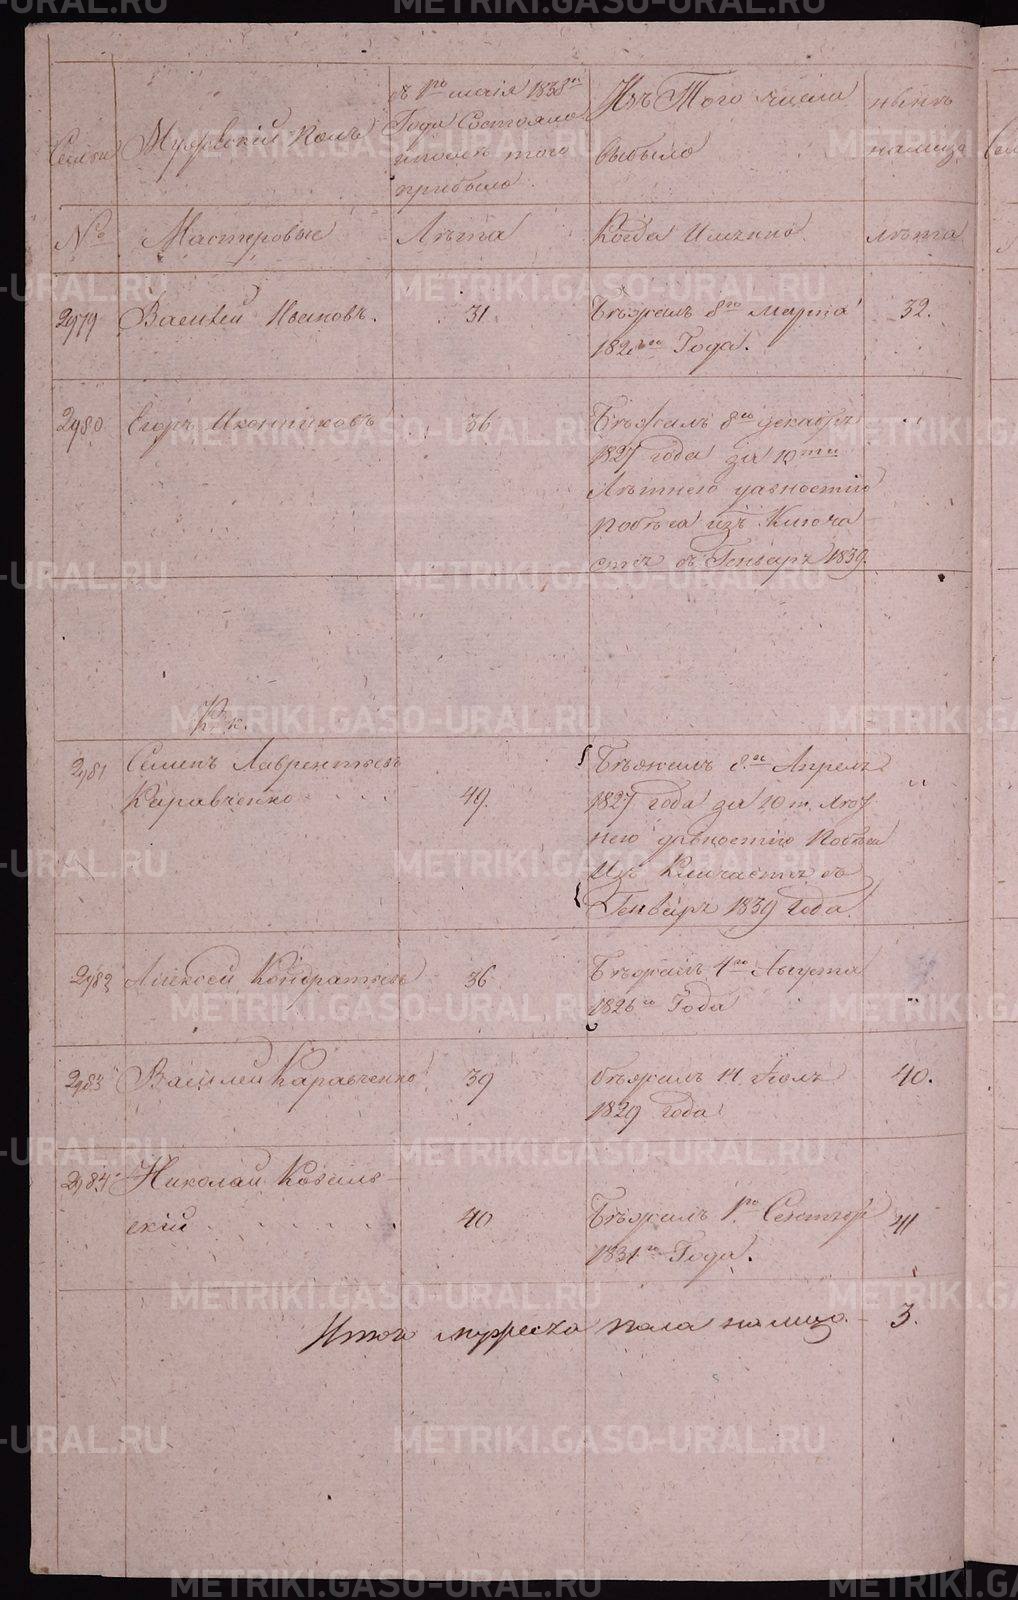 Семьи
Мужескій полъ
съ 1го маія 1838го
Года Состояло
и после того
прибыло
Изъ Того числа
выбыло
ныне
налицо
№
Мастеровые
Лѣта
Когда Имянно
лѣта
2979 Василей Ивановъ. 31 Бѣжалъ 8го марта 32.
Года.
2980 Егоръ Иконниковъ 36 Бѣжалъ 8го декабря
1827 года за 10ти
Лѣтнею давностію
побѣга изъ
въ Генварѣ 1839.
2981 Семенъ Лаврентьевъ
Каравченко 49.
Бѣжалъ 8го Апреля
1827 года за 10ти лѣт
нею давностію Побѣга
Изъ
Генварѣ 1839 Года.
2982 Алексей Кондратьевъ 36 Бѣжалъ 4го Августа
1826го Года
2983 Василей Каравченко 39 бѣжалъ 11 40.
1829 года
2984 Николай
скій 40 Бѣжалъ 1го Сентябр 41
1831го Года.
Итого мужеска пола налицо. 3.
METRIKI.GASO-URAL.RU